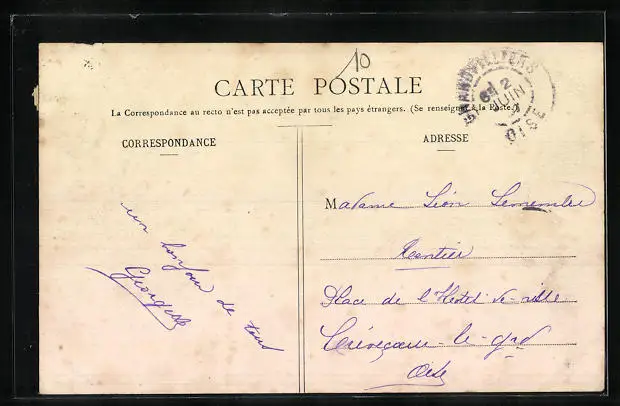 10
CARTE POSTALE
La Correspondance au recto n'est pas acceptée par tous les pays étrangers. (Se renseigner à la Poste.)
CORRESPONDANCE
ADRESSE
un bonjour de tous
Georgette
Madame Léon
Rentier
Place de l'Hôtel de ville
Crèvecœur-le-grd
Oise
GRANDVILLIERS
2
JUIN
OISE